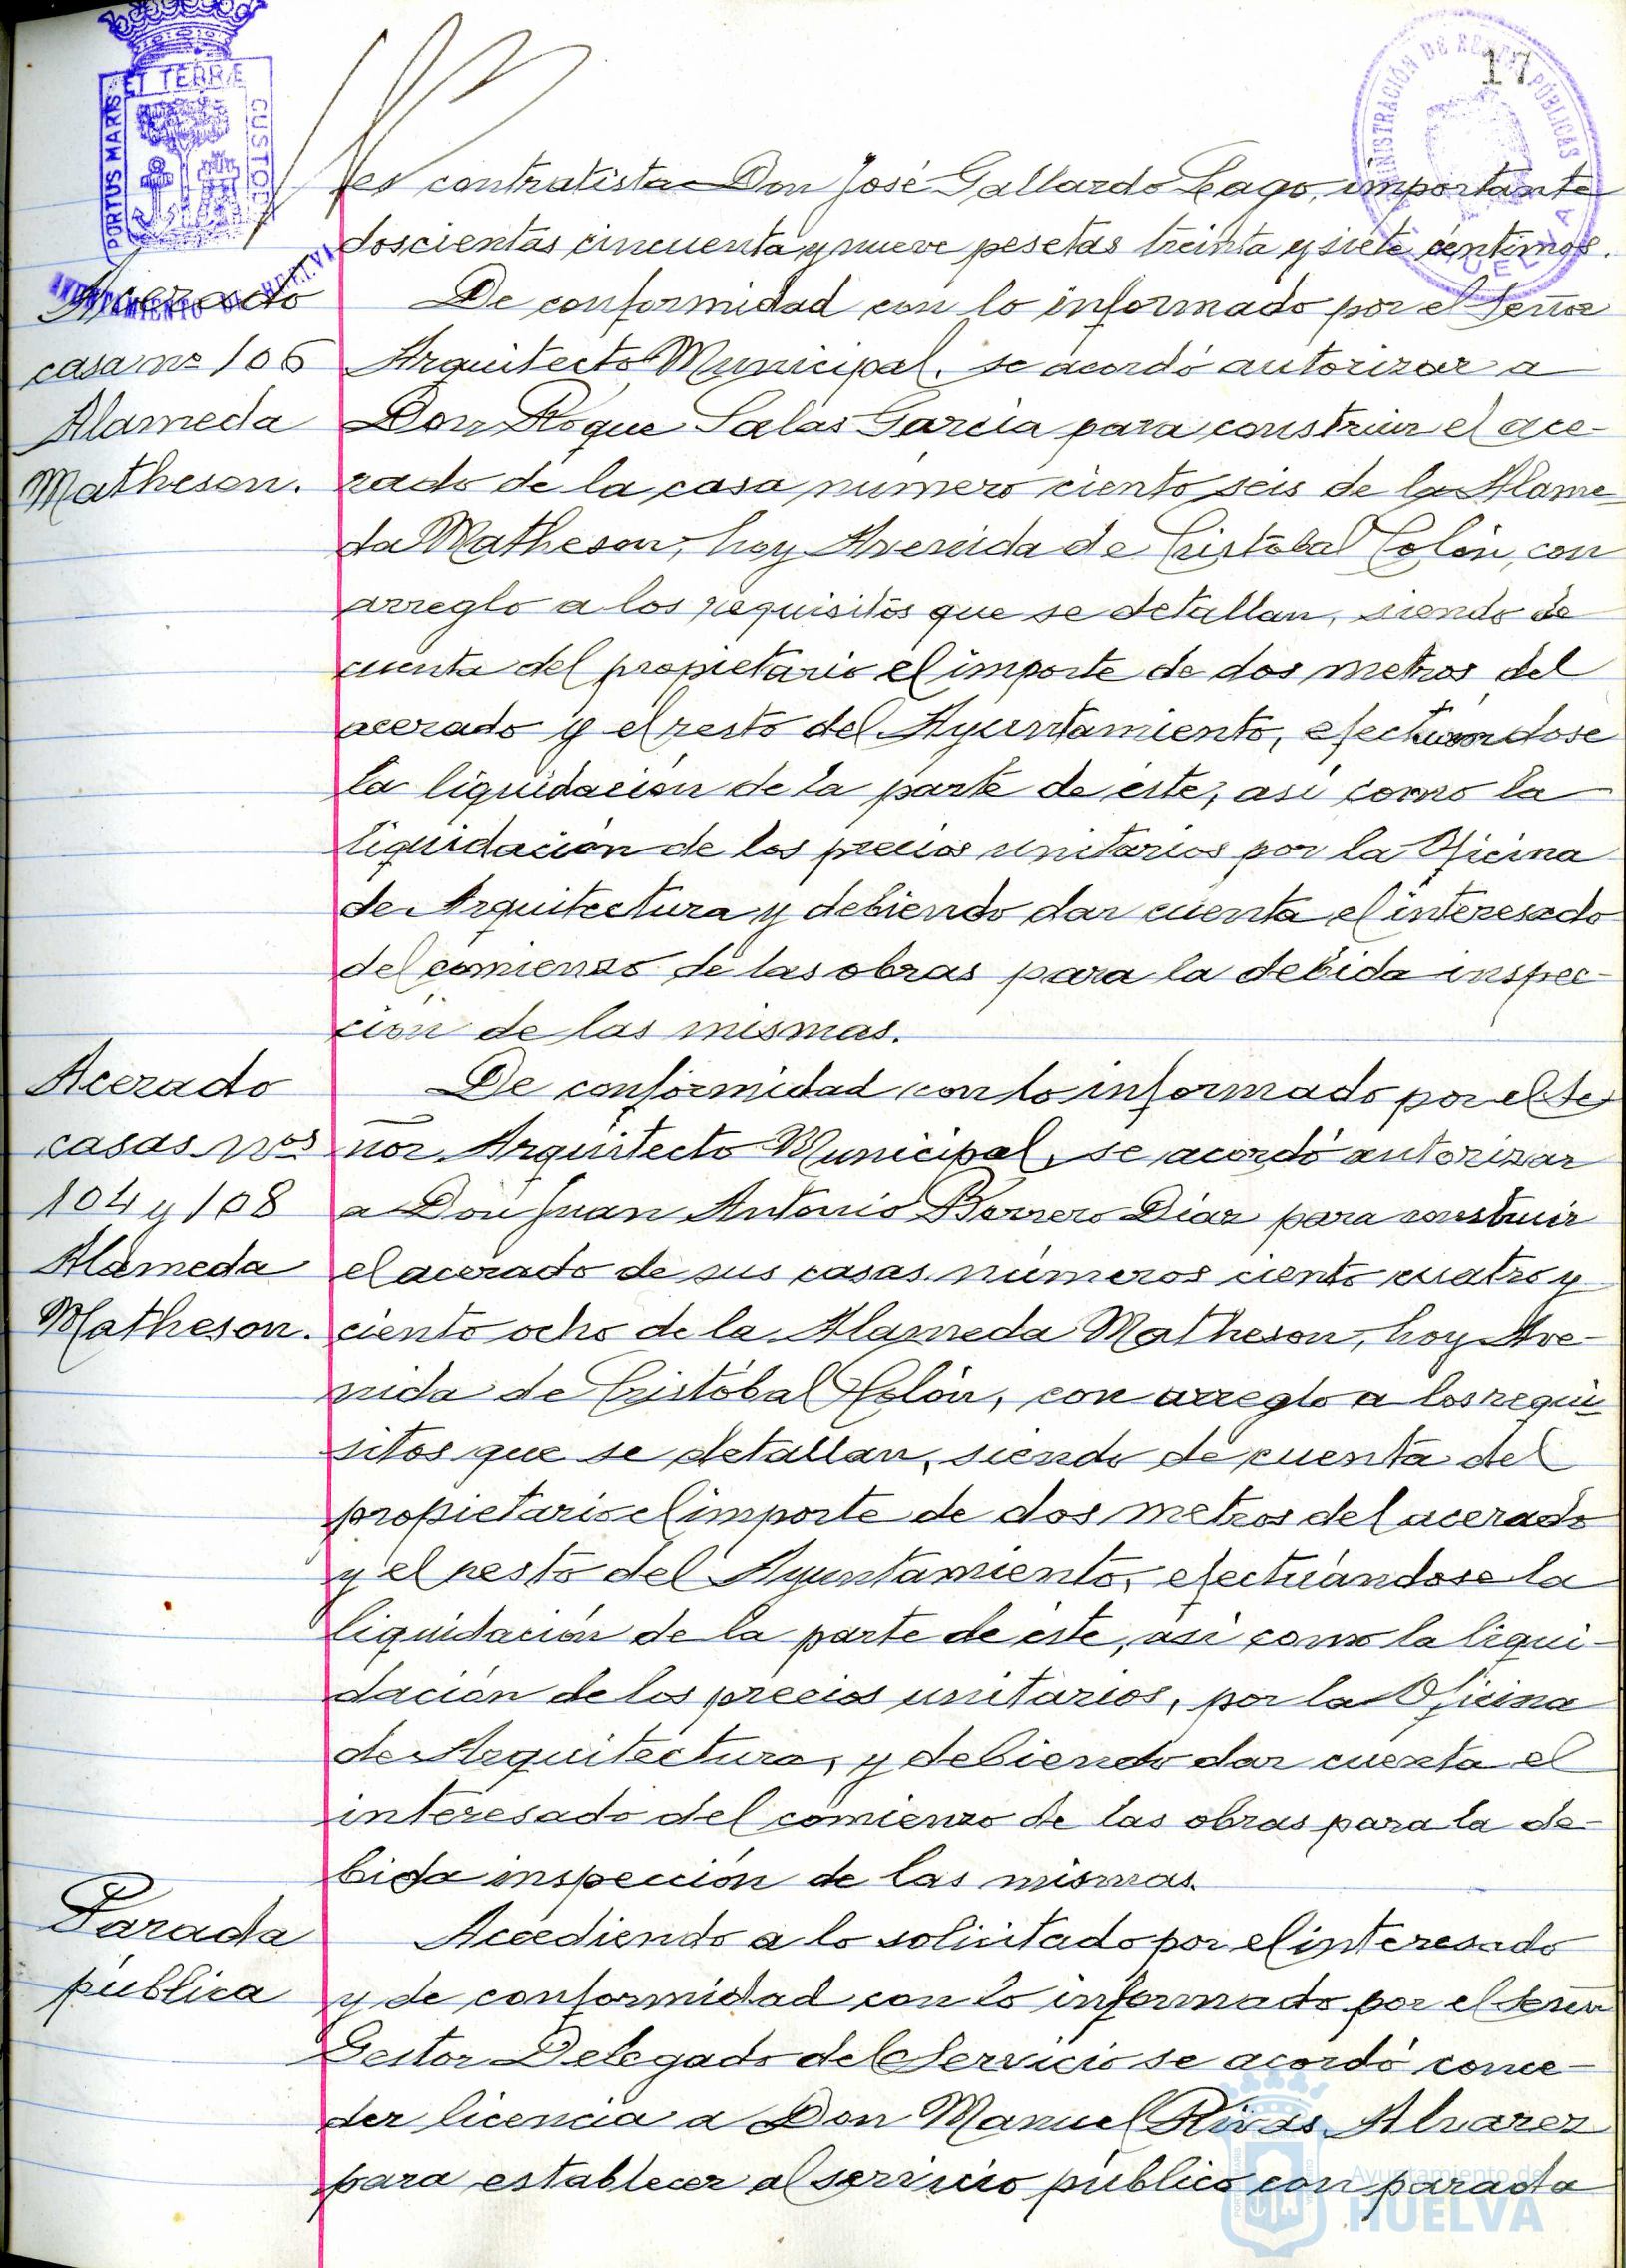 17
PORTUS MARIS ET TERRÆ CUSTODIA
AYUNTAMIENTO DE HUELVA
ADMINISTRACIÓN DE RENTAS PÚBLICAS
HUELVA
contratista Don José Gallardo Lago, importante
doscientas cincuenta y nueve pesetas treinta y siete céntimos.
Acerado
casa nº 106
Alameda
Matheson.
De conformidad con lo informado por el Señor
Arquitecto Municipal, se acordó autorizar a
Don Roque Salas García para construir el ace-
rado de la casa número ciento seis de la Alame-
da Matheson, hoy Avenida de Cristóbal Colón, con
arreglo a los requisitos que se detallan, siendo de
cuenta del propietario el importe de dos metros del
acerado y el resto del Ayuntamiento, efectuandose
la liquidación de la parte de éste, así como la
liquidación de los precios unitarios por la Oficina
de Arquitectura y debiendo dar cuenta el interesado
del comienzo de las obras para la debida inspec-
ción de las mismas.
Acerado
casas nos
104 y 108
Alameda
Matheson.
De conformidad con lo informado por el Se-
ñor Arquitecto Municipal, se acordó autorizar
a Don Juan Antonio Borrero Díaz para construir
el acerado de sus casas números ciento cuatro y
ciento ocho de la Alameda Matheson, hoy Ave-
nida de Cristóbal Colón, con arreglo a los requi-
sitos que se detallan, siendo de cuenta del
propietario el importe de dos metros del acerado
y el resto del Ayuntamiento, efectuándose la
liquidación de la parte de éste, así como la liqui-
dación de los precios unitarios, por la Oficina
de Arquitectura, y debiendo dar cuenta el
interesado del comienzo de las obras para la de-
bida inspección de las mismas.
Parada
pública
Accediendo a lo solicitado por el interesado
y de conformidad con lo informado por el Señor
Gestor Delegado del Servicio se acordó conce-
der licencia a Don Manuel Rivas Alvarez
para establecer al servicio público con parada
Ayuntamiento de
HUELVA